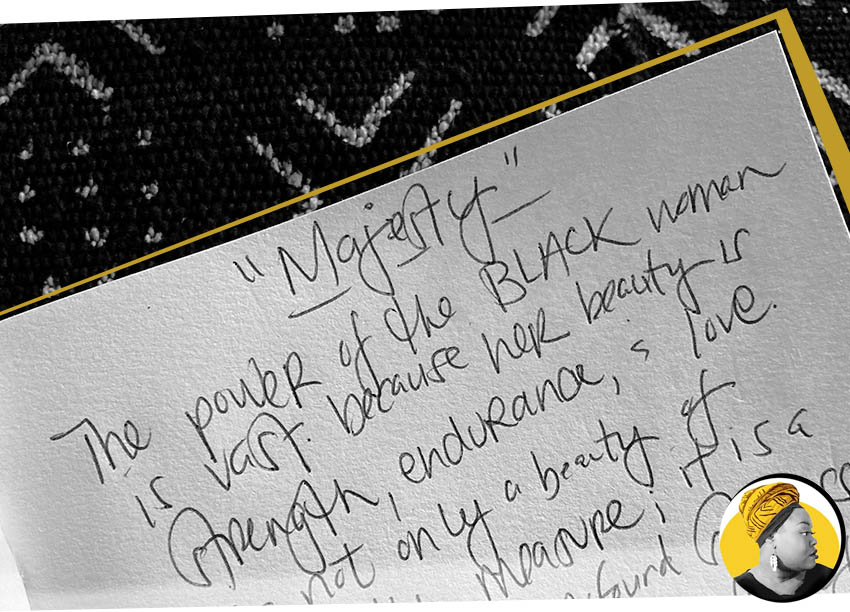 "Majesty"
The power of the BLACK woman
is vast because her beauty is
strength, endurance, & love.
not only a beauty of
measure; it is a
found